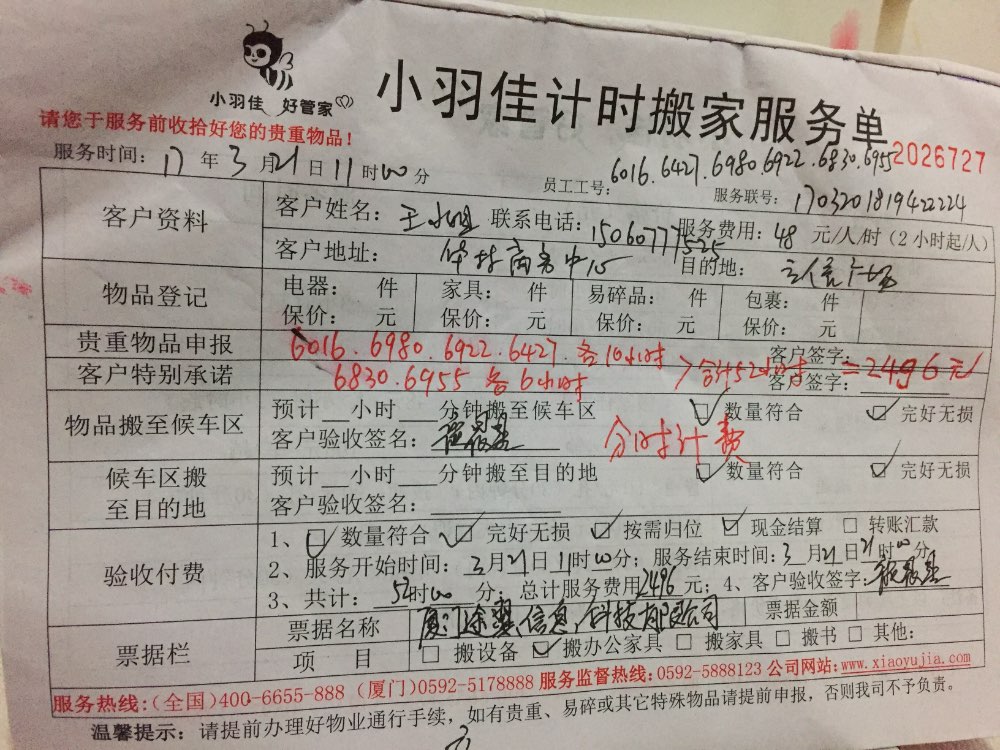 小羽佳 好管家
小羽佳计时搬家服务单
请您于服务前收拾好您的贵重物品！
2026727
服务时间：17年3月21日11时00分
员工工号：6016.6427.6980.6922.6830.6955
服务联号：170320181942224
客户资料
客户姓名：王小姐 联系电话：15060777525 服务费用：48 元/人/时（2小时起/人）
客户地址：商务中心 目的地：
物品登记
电器： 件 家具： 件 易碎品： 件 包裹： 件
保价： 元 保价： 元 保价： 元 保价： 元
贵重物品申报 6016.6980.6922.6427.各10小时 客户签字：
客户特别承诺 6830.6955 各6小时 合计52小时 =2496元 客户签字：
物品搬至候车区
预计__小时___分钟搬至候车区 数量符合 完好无损
客户验收签名：
分时计费
候车区搬至目的地
预计__小时___分钟搬至目的地 数量符合 完好无损
客户验收签名：
验收付费
1、☑数量符合 ☑完好无损 ☑按需归位 ☑现金结算 □转账汇款
2、服务开始时间：3月21日11时00分；服务结束时间：3月21日21时00分
3、共计：52时00分；总计服务费用2496元；4、客户验收签字：
票据栏
票据名称 厦门途翼信息科技有限公司 票据金额
项 目 □搬设备 ☑搬办公家具 □搬家具 □搬书 □其他：
服务热线：（全国）400-6655-888（厦门）0592-5178888 服务监督热线：0592-5888123 公司网站：www.xiaoyujia.com
温馨提示：请提前办理好物业通行手续，如有贵重、易碎或其它特殊物品请提前申报，否则我司不予负责。